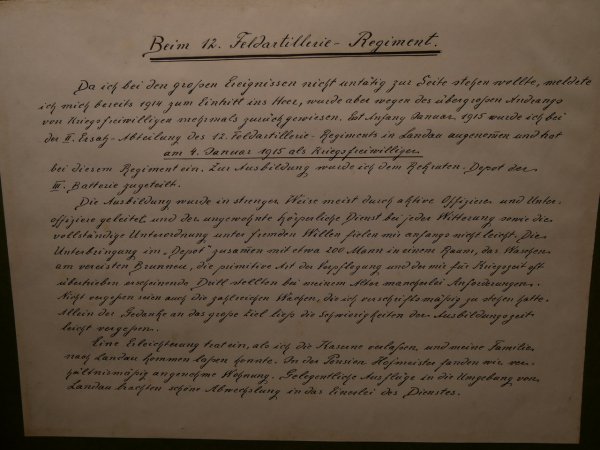 Beim 12. Feldartillerie-Regiment.
Da ich bei den großen Ereignissen nicht untätig zur Seite stehen wollte, meldete
ich mich bereits 1914 zum Eintritt ins Heer, wurde aber wegen des übergroßen Andrangs
von Kriegsfreiwilligen mehrmals zurückgewiesen. Erst Anfang Januar 1915 wurde ich bei
der II. Ersatz-Abteilung des 12. Feldartillerie-Regiments in Landau angenommen und trat
am 4. Januar 1915 als Kriegsfreiwilliger
bei diesem Regiment ein. Zur Ausbildung wurde ich dem Rekruten-Depot der
III. Batterie zugeteilt.
Die Ausbildung wurde in strenger Weise meist durch aktive Offiziere und Unter-
offiziere geleitet, und der ungewohnte körperliche Dienst bei jeder Witterung sowie die
vollständige Unterordnung unter fremden Willen fielen mir anfangs nicht leicht. Die
Unterbringung im „Depot" zusamen mit etwa 200 Mann in einem Raum, das Waschen
am vereisten Brunnen, die primitive Art der Verpflegung und der mir für Kriegszeit oft
übertrieben erscheinende Drill stellten bei meinem Alter mancherlei Anforderungen.
Nicht vergeßen seien auch die zahlreichen Wachen, die ich vorschriftsmäßig zu stehen hatte.
Allein der Gedanke an das große Ziel ließ die Schwierigkeiten der Ausbildungszeit
leicht vergeßen.
Eine Erleichterung trat ein, als ich die Kaserne verlaßen, und meine Familie
nach Landau kommen laßen konnte. In der Pension Hofmeister fanden wir ver-
hältnismäßig angenehme Wohnung. Gelegentliche Ausflüge in die Umgebung von
Landau brachten schöne Abwechslung in das Einerlei des Dienstes.